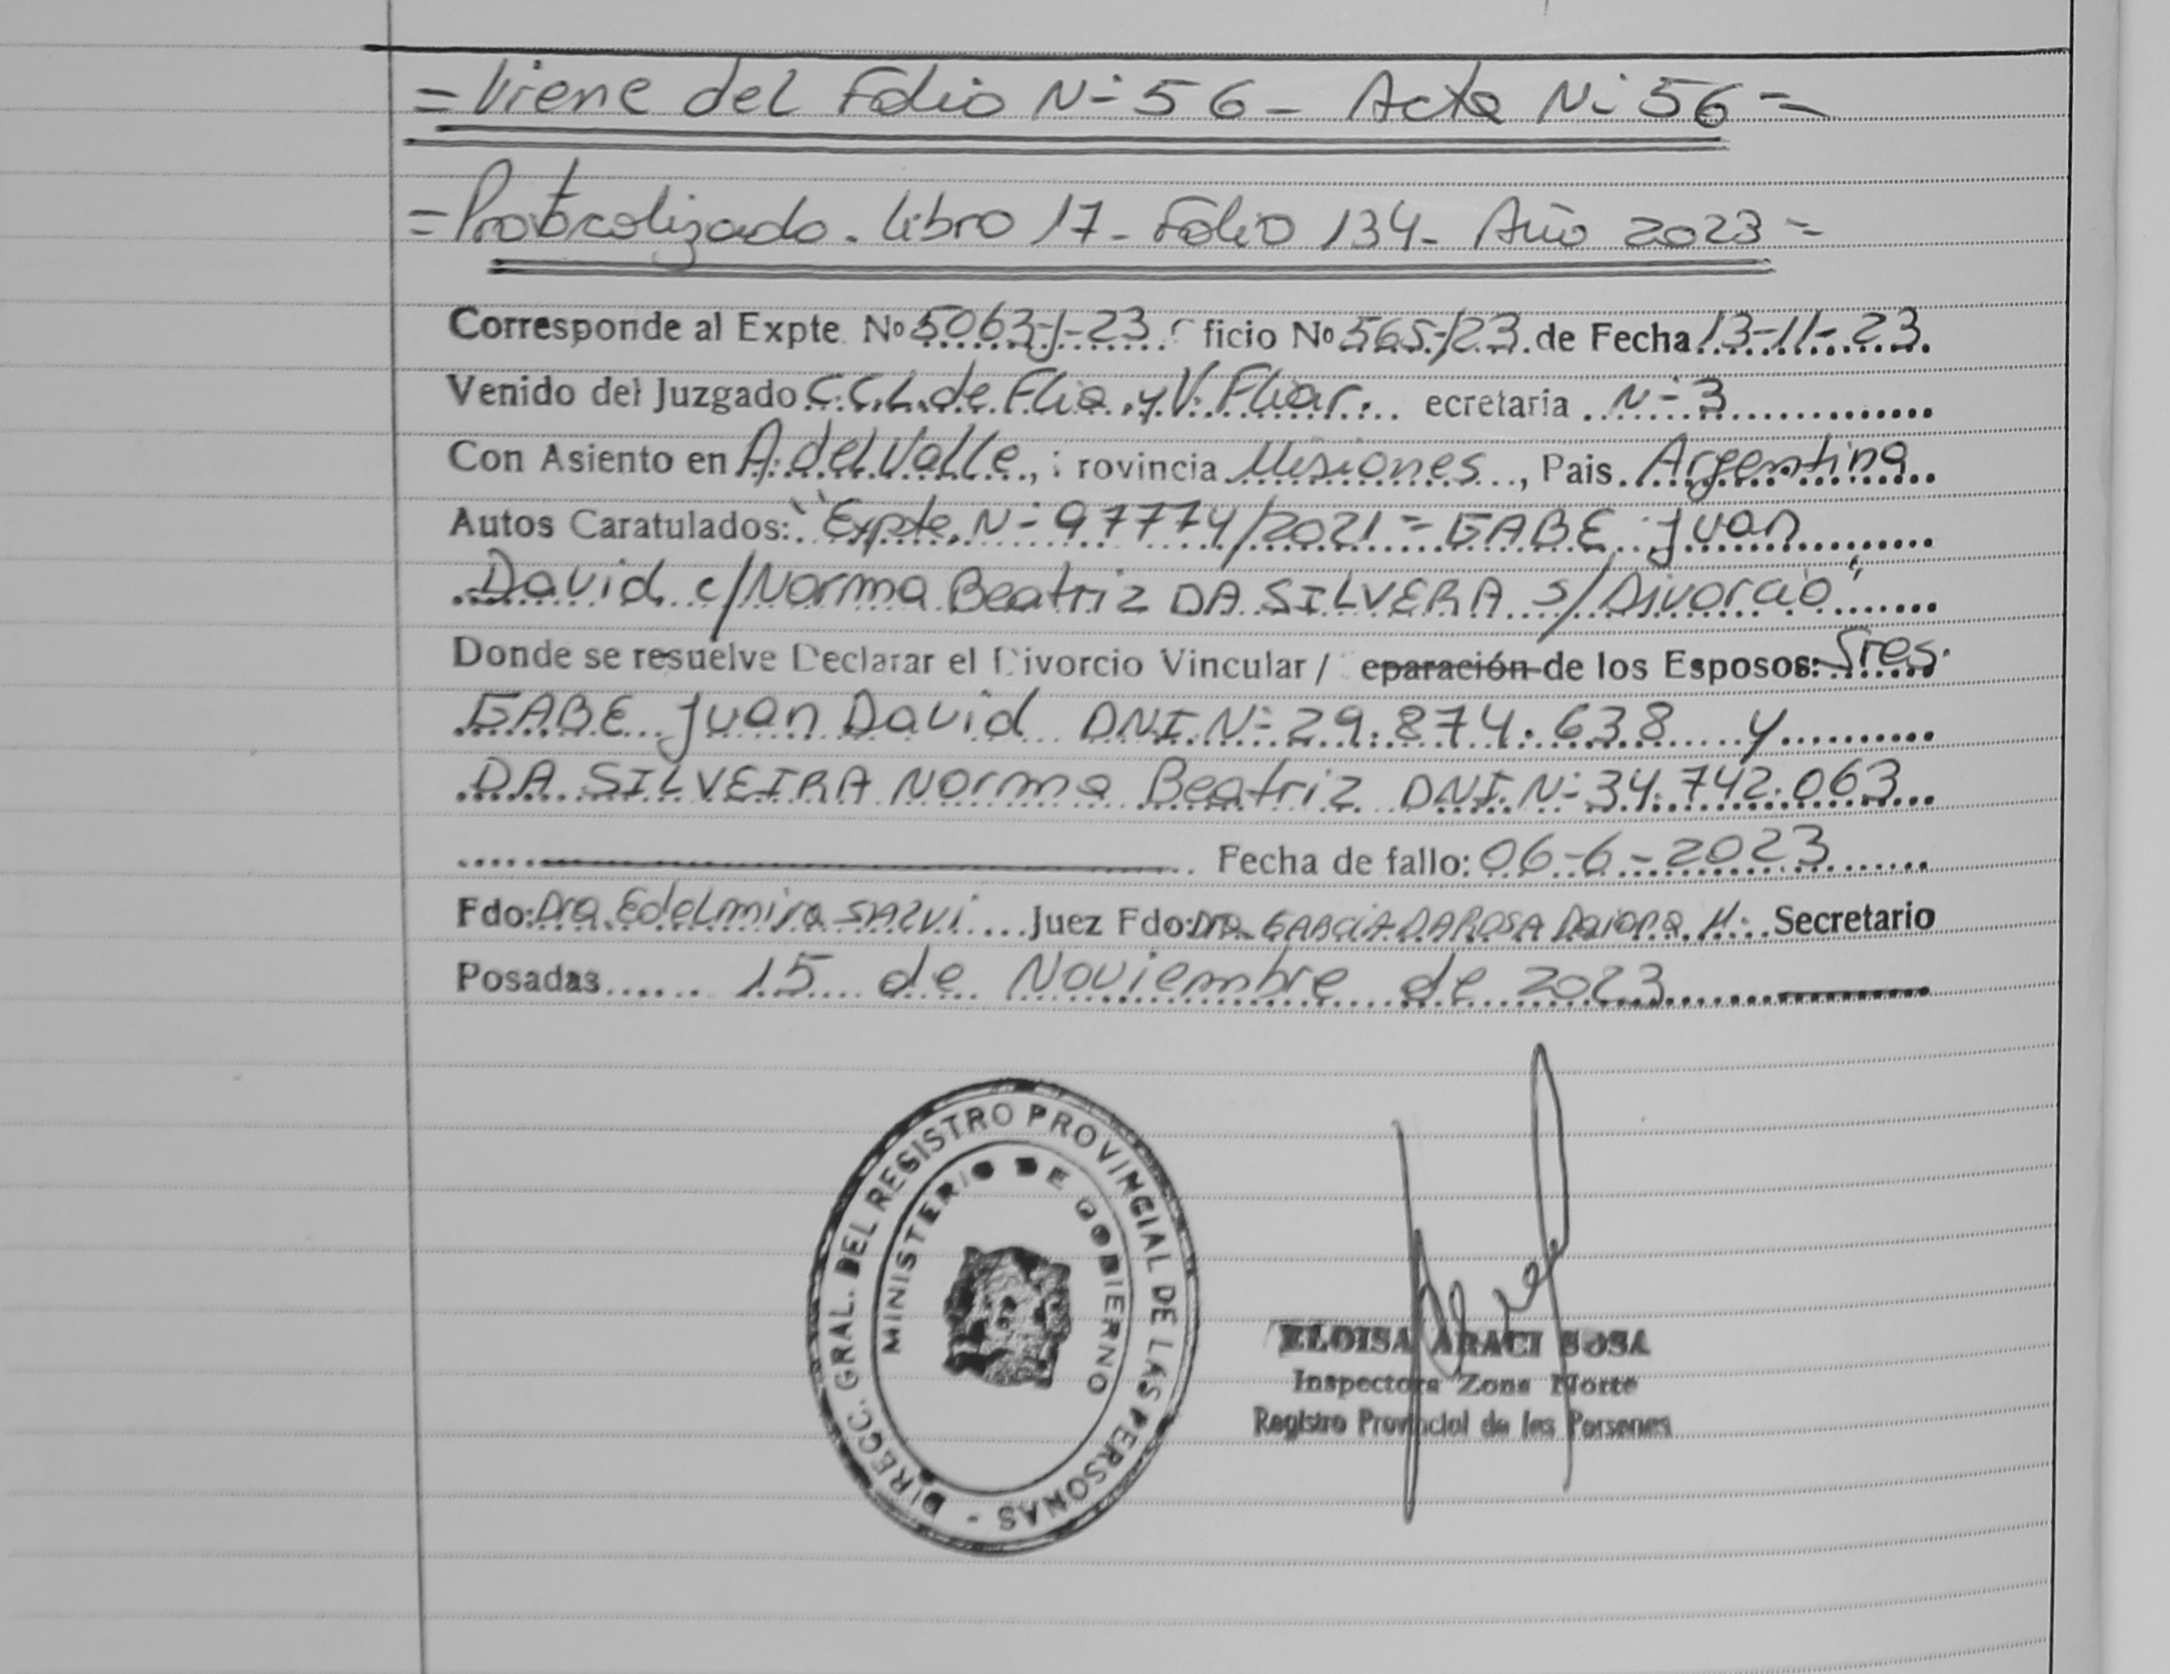 = Viene del Folio Nº 56 - Acta Nº 56 =
= Protocolizado. Libro 17 - Folio 134 - Año 2023 =
Corresponde al Expte. Nº 5063-J-23. ficio Nº 565-/23. de Fecha 13-11-23.
Venido del Juzgado C.C.L. de Flia. y V. Fliar. ecretaria Nº 3
Con Asiento en A. del Valle, rovincia Misiones, Pais Argentina
Autos Caratulados: "Expte. Nº 97774/2021 = GABE Juan
David c/Norma Beatriz DA SILVERA s/Divorcio"
Donde se resuelve Declarar el Divorcio Vincular / eparación de los Esposos: Sres.
GABE Juan David DNI. Nº 29.874.638 y
DA SILVEIRA Norma Beatriz DNI. Nº 34.742.063
Fecha de fallo: 06-6-2023
Fdo: Dra. Edelmira SALVI Juez Fdo: Dra. GARCIA DAROSA Daiana M. Secretario
Posadas 15 de Noviembre de 2023
DIRECC. GRAL. DEL REGISTRO PROVINCIAL DE LAS PERSONAS -
MINISTERIO DE GOBIERNO
ELOISA ARACI SOSA
Inspectora Zona Norte
Registro Provincial de las Personas